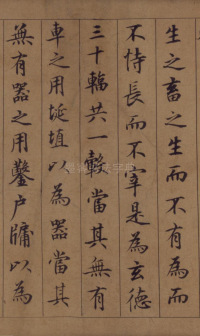 生之畜之生而不有為而
不恃長而不宰是為玄德
三十輻共一轂當其無有
車之用埏埴以為器當其
無有器之用鑿户牖以為